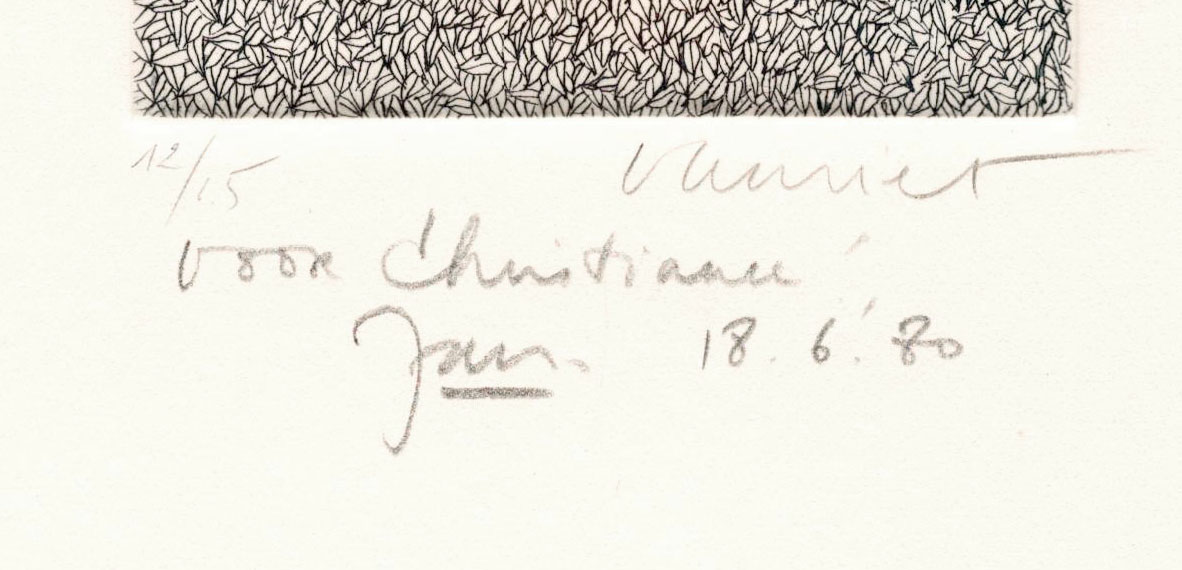 12/15 Vanriet
voor Christiane
Jan. 18.6.'80